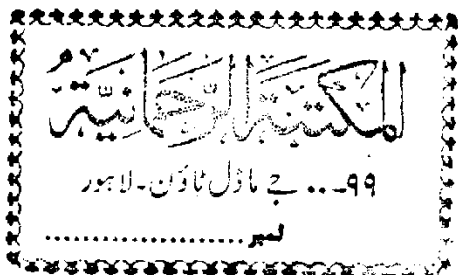 المكتبة الرحمانية
۹۹ـ.. جے ماڈل ٹاؤن۔لاہور
نمبر....................